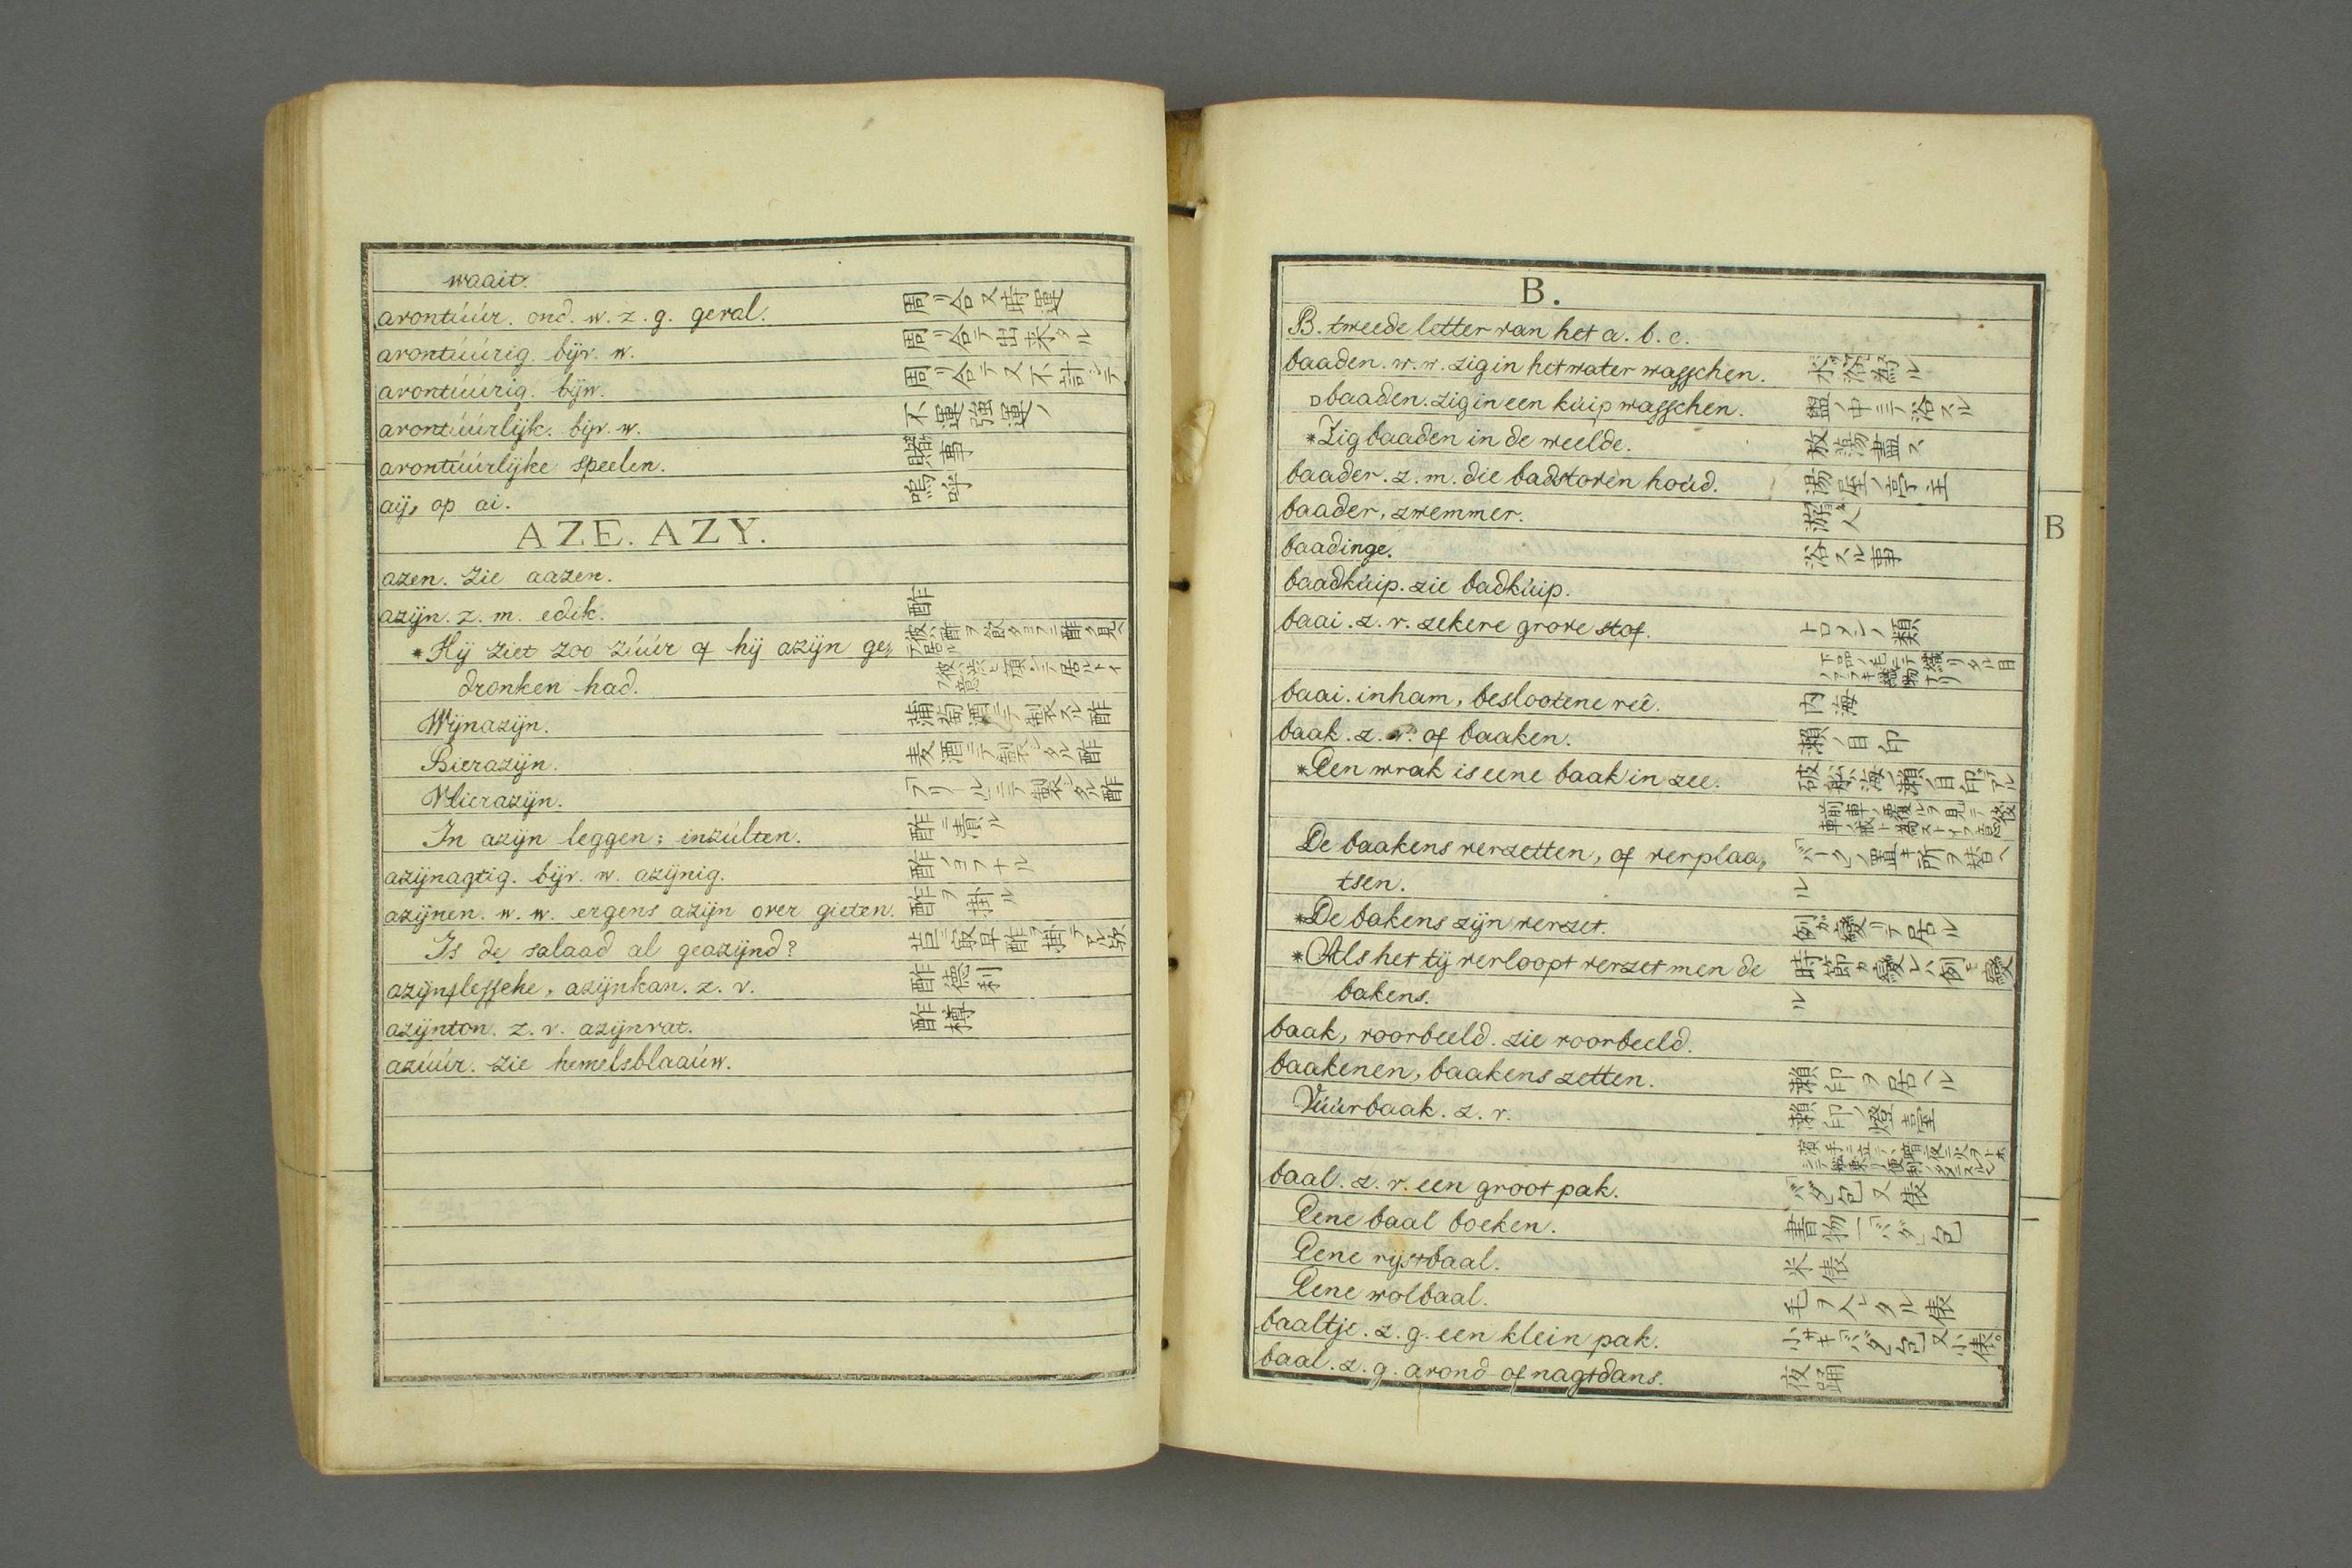 waait.
avontúúr. ond. w. z. g. geval. 周リ合又時運
avontúúrig. bijv. w. 周リ合テ出来タル
avontúúrig. bijw. 周リ合テ又不計シテ
avontúúrlijk. bijv. w. 不運強運ノ
avontúúrlijke speelen. 賭事
aij, op ai. 嗚呼
AZE. AZY.
azen. zie aazen.
azijn. z. m. edik. 酢
*Hij ziet zoo zúúr of hij azijn ge,,
dronken had.
Wijnazijn. 蒲萄酒ニテ製スル酢
Bierazijn. 麦酒ニテ製シタル酢
Vlierazijn. 「フリール」ニテ製シタル酢
In azijn leggen; inzúlten. 酢ニ漬ル
azijnagtig. bijv. w. azijnig. 酢ノヨフナル
azijnen. w. w. ergens azijn over gieten. 酢ヲ掛ル
Is de salaad al geazijnd?
azijnflessche, azijnkan. z. v. 酢德利
azijnton. z. v. azijnvat. 酢樽
azúúr. zie hemelsblaaúw.
B.
B. tweede letter van het a. b. c.
baaden. w. w. zig in het water wasschen. 水浴為ル
baaden. zig in een kúip wasschen. 盥ノ中ニテ浴スル
*Zig baaden in de weelde. 放蕩盡ス
baader. z. m. die badstoven hoúd. 湯屋ノ亭主
baader, zwemmer. 游人
baadinge. 浴スル事
baadkúip. zie badkúip.
baai. z. v. zekere grove stof. トロメンノ類
下品ノ毛ニテ織リタル目
baai. inham, beslootene reê. 内海
baak. z. v. of baaken. 瀬ノ目印
*Een wrak is eene baak in zee. 破船ハ海ノ瀬ノ目印デアル
前車ノ覆ルヲ見テ後
車ノ戒ト為ストイフ意
De baakens verzetten, of verplaa,, 「バーク」ノ置キ所ヲ替ヘ
tsen. ル
*De bakens zijn verzet. 例ガ變リテ居ル
*Als het tij verloopt verzet men de 時節ガ變レバ例モ變
bakens. ル
baak, voorbeeld. zie voorbeeld.
baakenen, baakens zetten. 瀬印ヲ居ヘル
Vúúrbaak. z. v. 瀬印ノ燈臺
baal. z. v. een groot pak. 包又俵
Eene baal boeken. 書物一包
Eene rijstbaal. 米俵
Eene wolbaal. 毛ヲ入レタル俵
baaltje. z. g. een klein pak. 小サキ包又小俵。
baal. z. g. avond of nagtdans. 夜踊
B